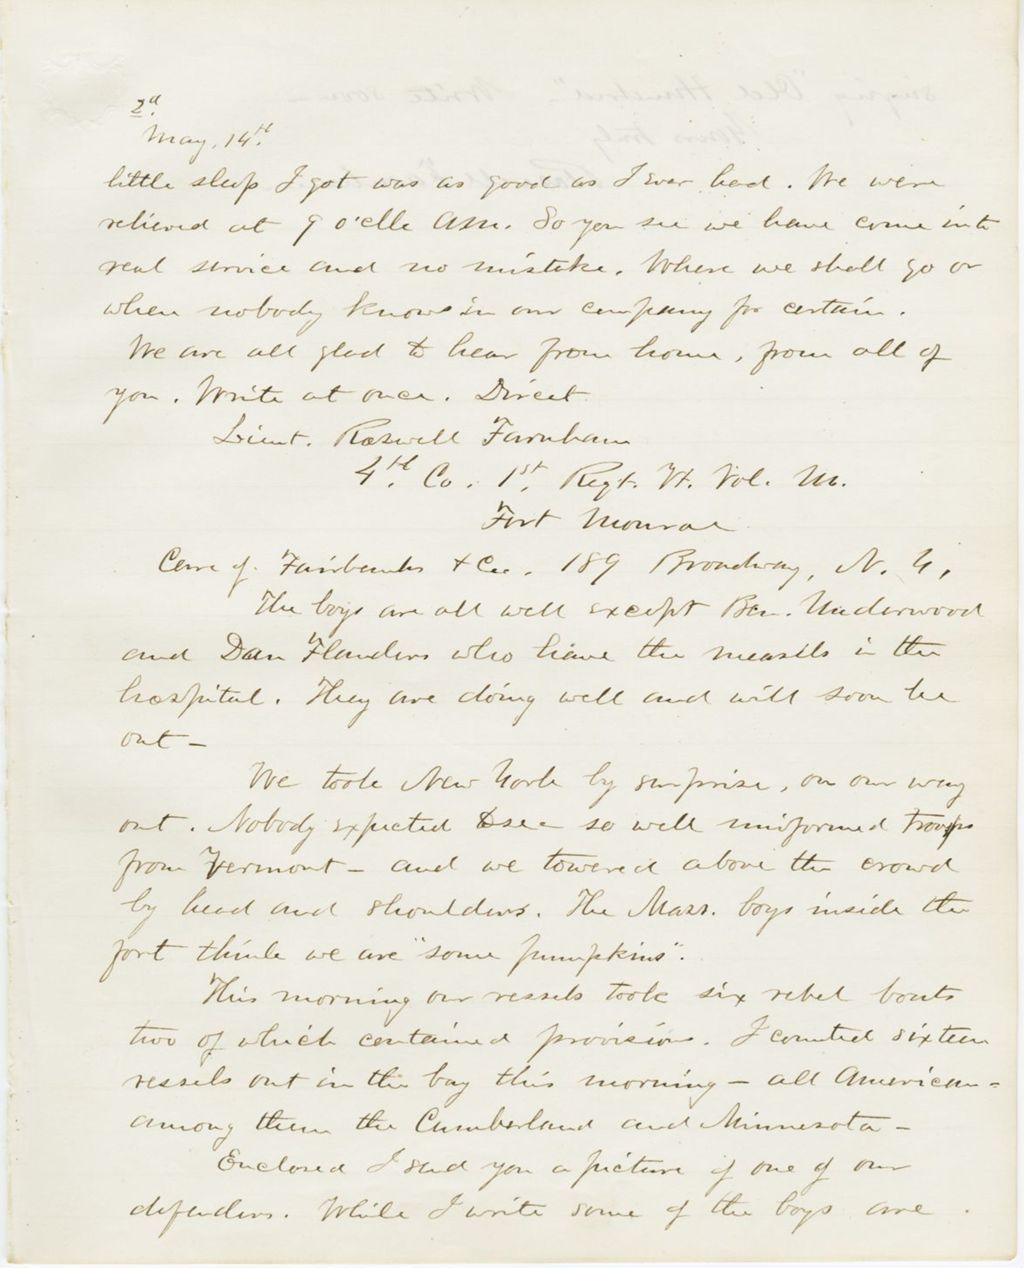 2d.
May, 14th.
little sleep I got was as good as I ever had. We were
relieved at 9 o'clk A.M. So you see we have come into
real service and no mistake. Where we shall go or
when nobody knows in our company for certain.
We are all glad to hear from home, from all of
you. Write at once. Direct
Lieut. Roswell Farnham
4th. Co. 1st. Regt. Vt. Vol. M.
Fort Monroe
Care of. Fairbanks & Co. 189 Broadway, N. Y.
The boys are all well except Ben. Underwood
and Dan Flanders who have the measels in the
hospital. They are doing well and will soon be
out—
We took New York by surprise, on our way
out. Nobody expected to see so well uniformed troops
from Vermont — and we towered above the crowd
by head and shoulders. The Mass. boys inside the
fort think we are "some pumpkins".
This morning our vessels took six rebel boats
two of which contained provisions. I counted sixteen
vessels out in the bay this morning — all American —
among them the Cumberland and Minnesota —
Enclosed I send you a picture of one of our
defenders. While I write some of the boys are